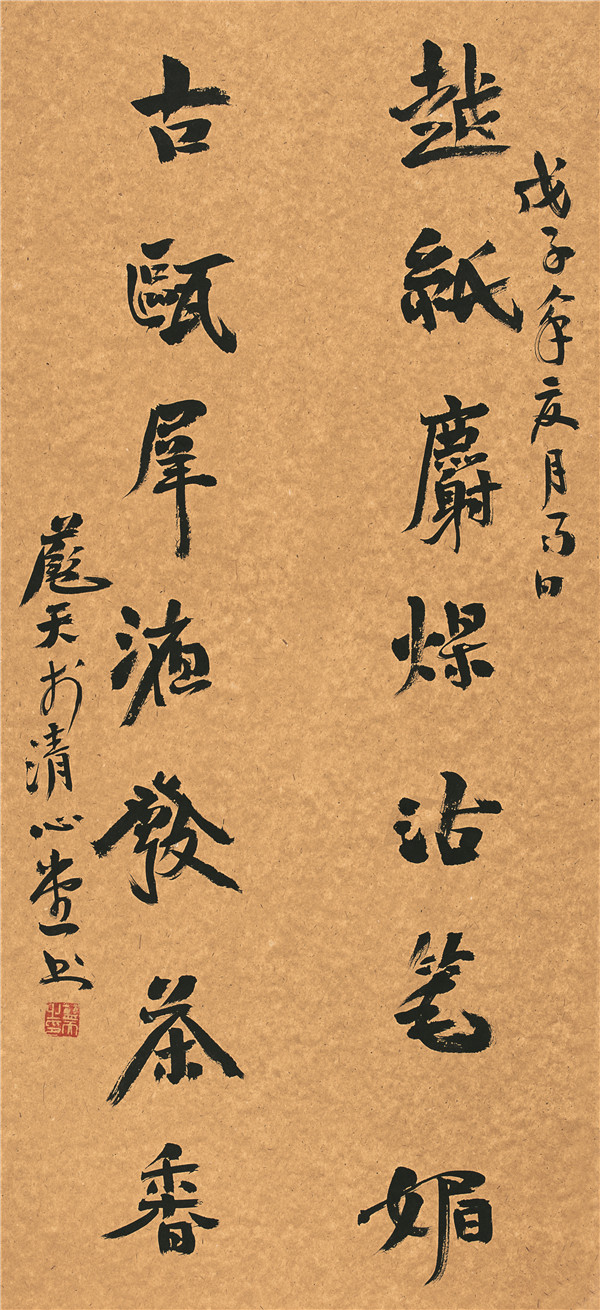 戊子年亥月丙日
越紙麝煤沾笔媚
古甌犀液發茶香
天於清心堂书